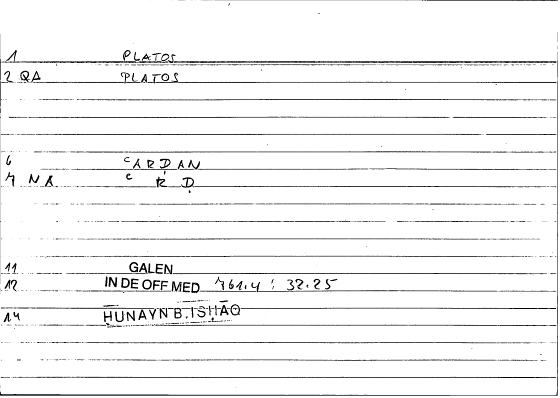 1 PLATOS
2 QA PLATOS
6 CARDAN
7 NA C R D
11 GALEN
12 IN DE OFF MED 761.4 : 32.25
14 HUNAYN B. ISḤĀQ